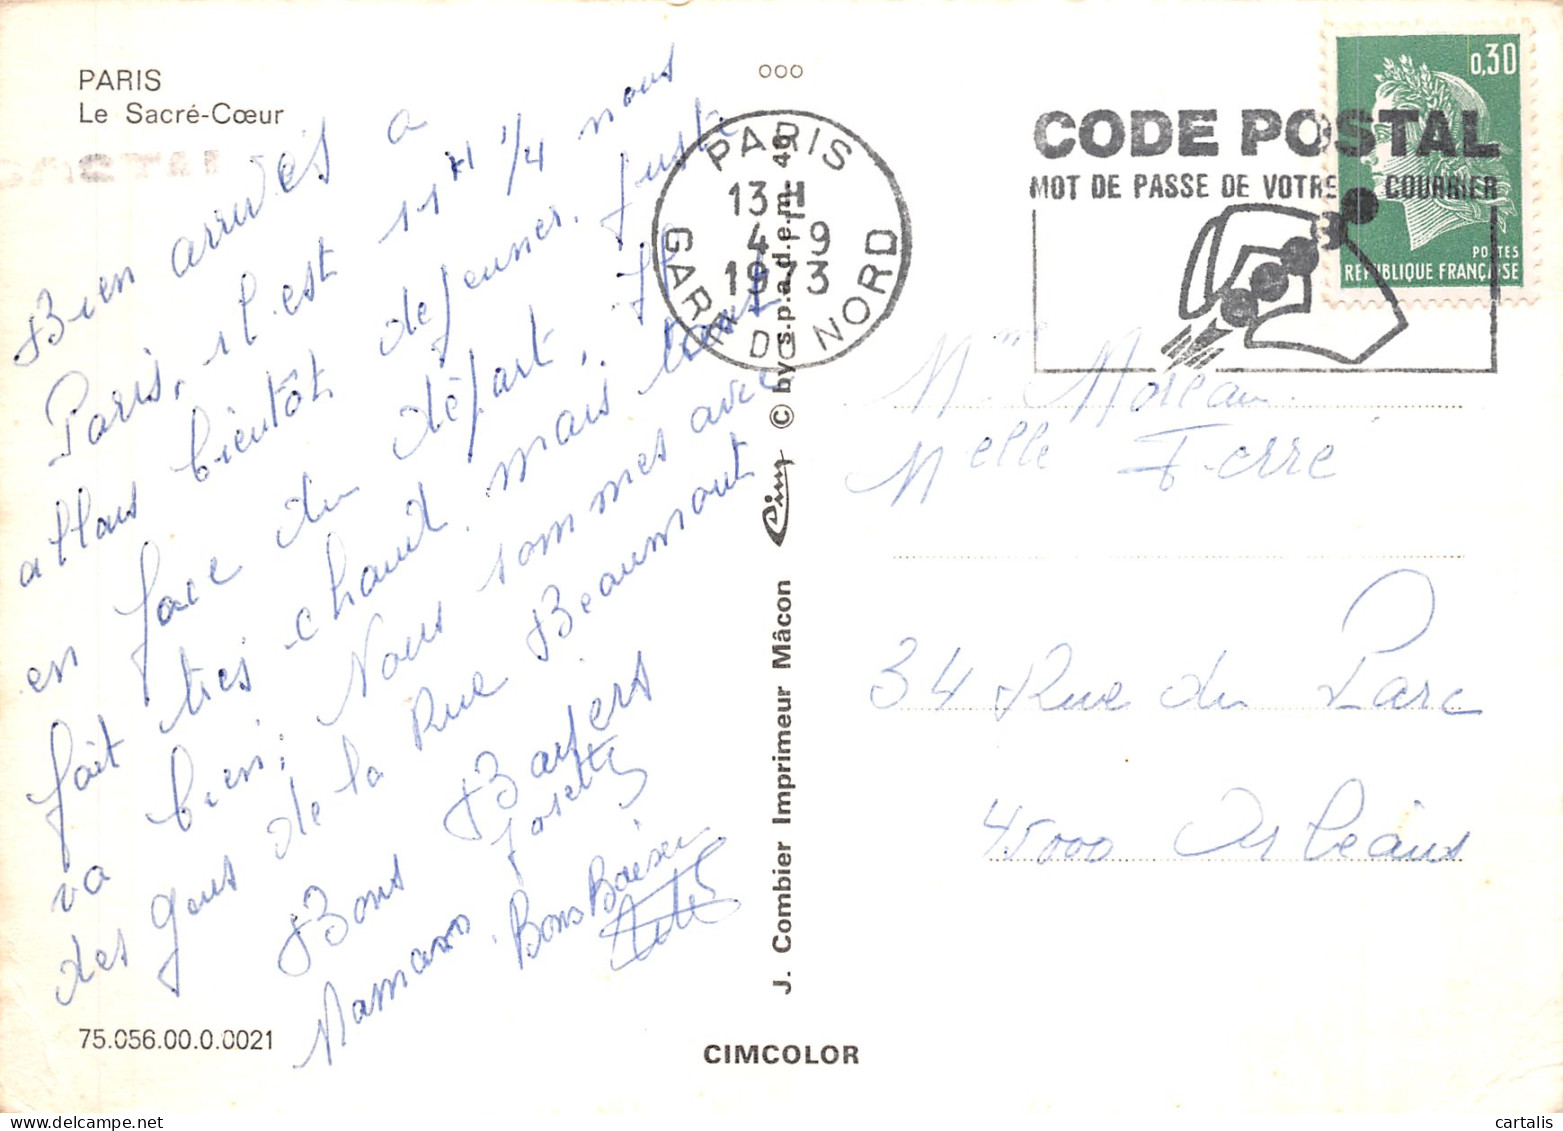 PARIS
Le Sacré-Cœur
Bien arrivés a
Paris, il est 11 H 1/4 nous
allons bientôt dejeuner. juste
en face du départ, Il
fait très chaud, mais tout
va bien; Nous sommes avec
des gens de la Rue Beaumont
Bons Baisers
Josette
Maman. Bons Baisers
75.056.00.0.0021
J. Combier Imprimeur Mâcon Cim © by s.p.a.d.e.m. 49
CIMCOLOR
PARIS
13 H
4-9
1973
GARE DU NORD
CODE POSTAL
MOT DE PASSE DE VOTRE COURRIER
0,30
POSTES
REPUBLIQUE FRANÇAISE
Mme Moreau
Melle Ferré
34 Rue du Parc
45000 Orléans
cartalis
www.delcampe.net